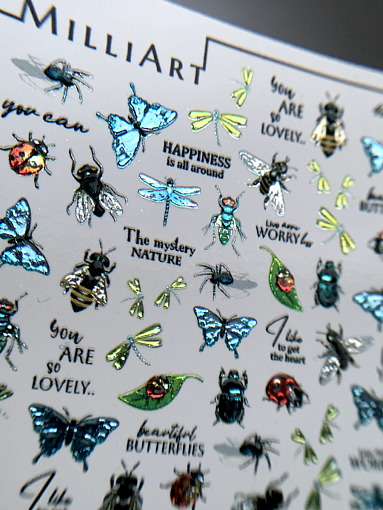 MILLIART
you can
you
ARE
so
LOVELY..
HAPPINESS
is all around
The mystery
NATURE
WORRY
you
ARE
so
LOVELY..
I like
to get
the heart
beautiful
BUTTERFLIES
I like